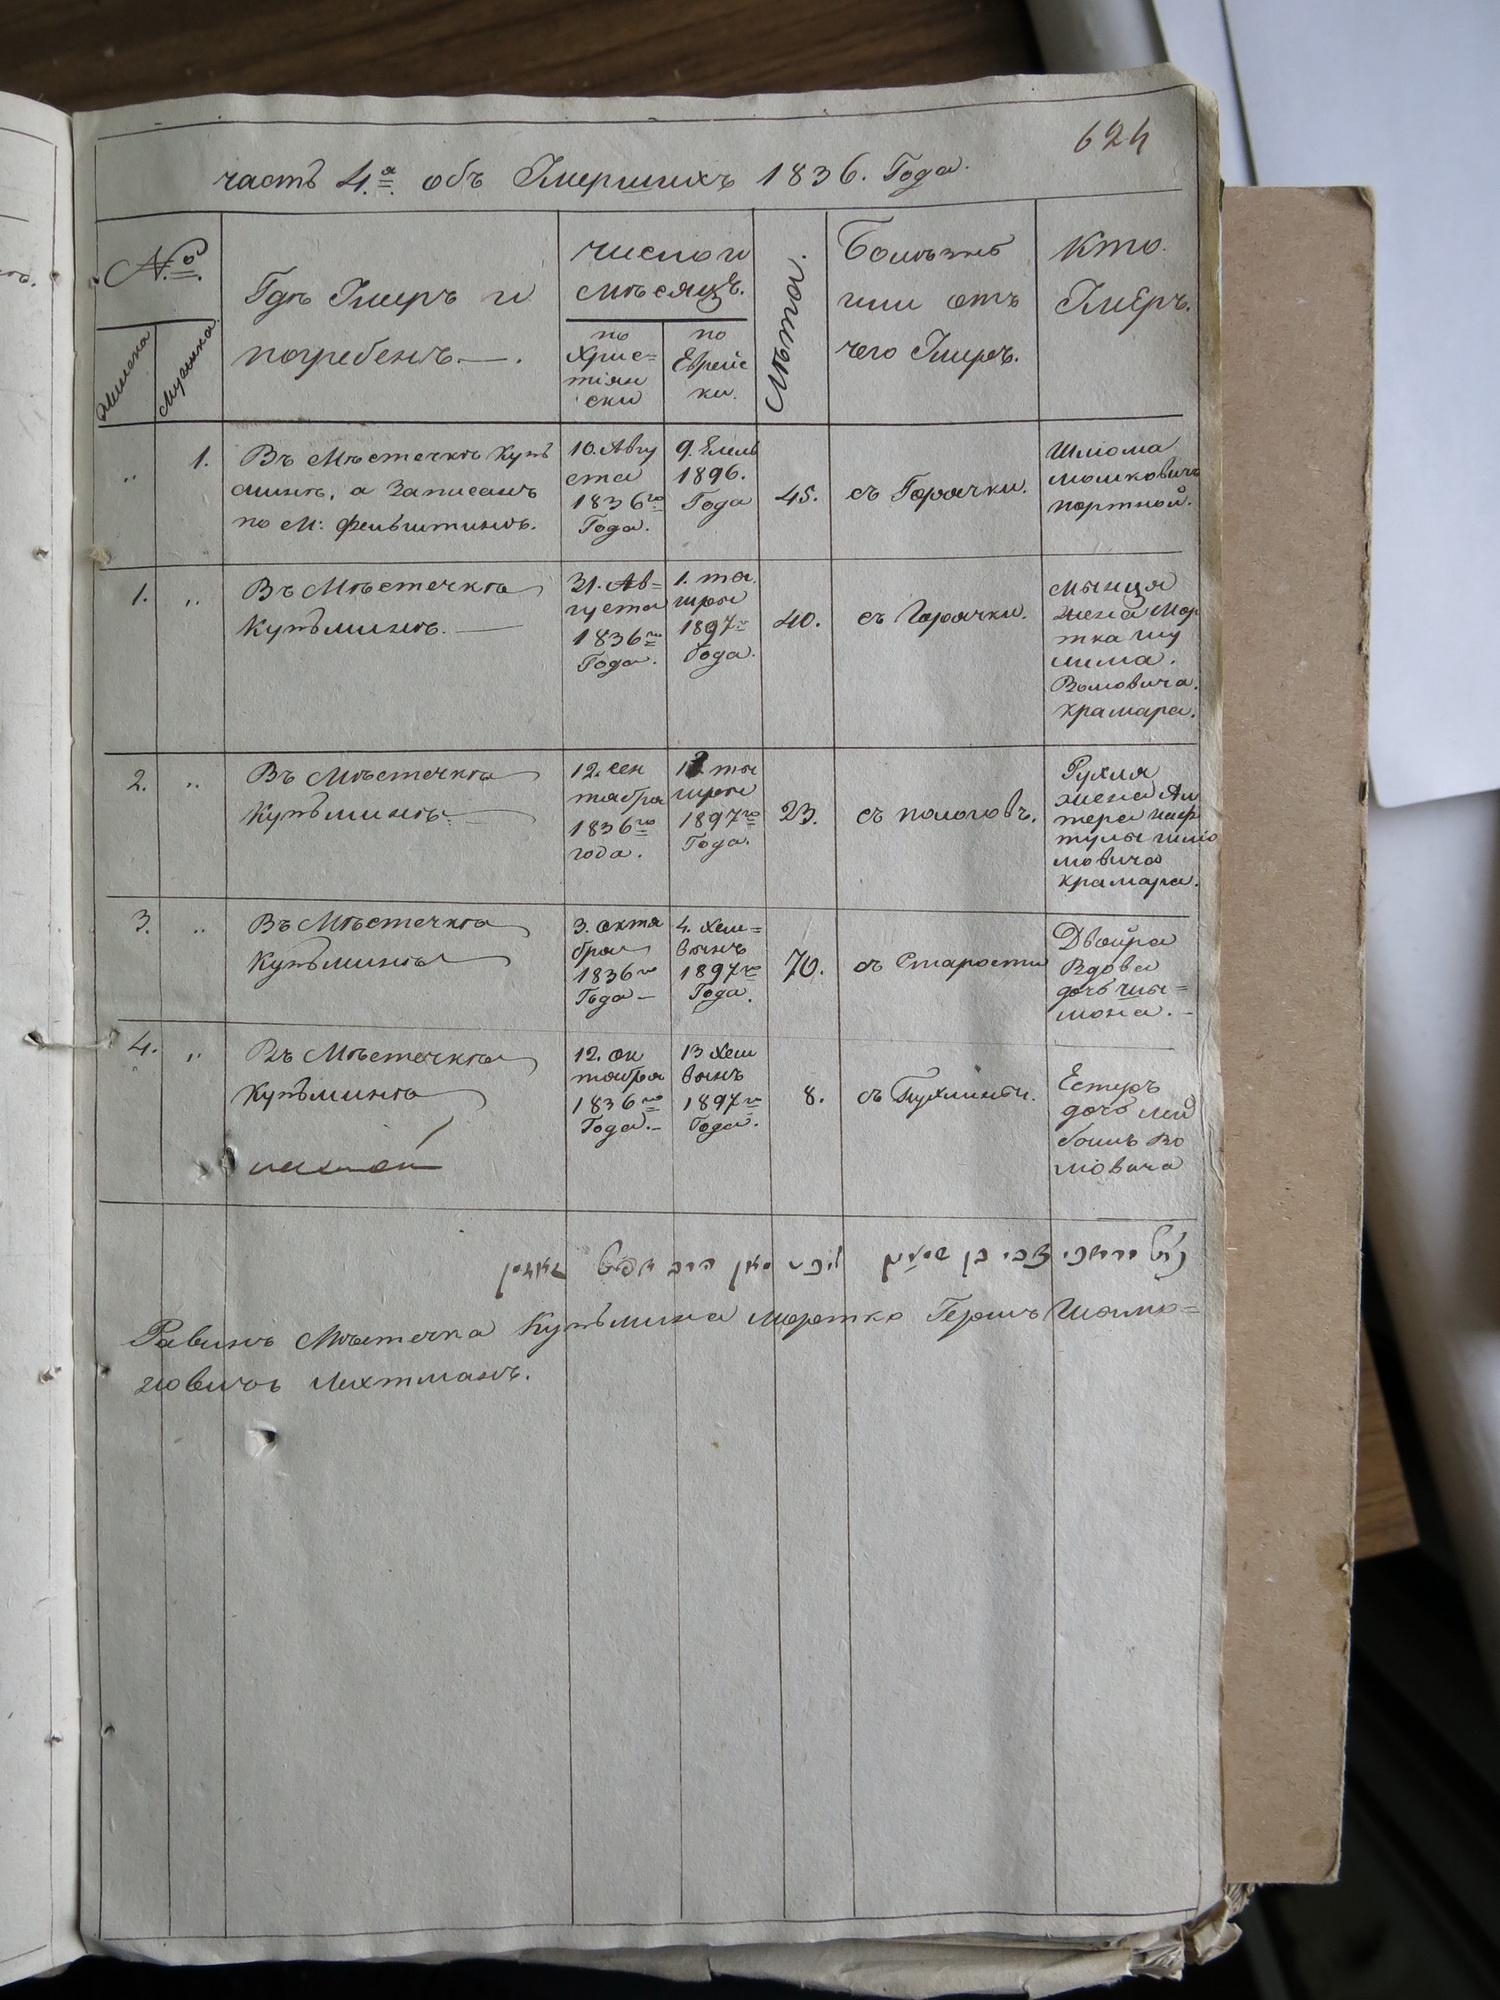 624
часть 4.я объ Умершихъ 1836. Года.
№о
Женска
Мужника
Гдѣ Умеръ и
погребенъ. — .
число и
мѣсяцъ.
по
Хрис=
тіян
ски
по
Еврейс
ки.
Лѣта.
Болѣзнь
или отъ
чего Умеръ.
Кто
Умеръ.
„ 1.
Въ Мѣстечкѣ Купѣ
минѣ, а Записанъ
по М: Фельштинѣ.
10. Авгу
ста
1836го
Года.
9. Елель
1896.
Года
45.
съ Горячки.
Шлома
Мошковичъ
портной.
1. „
Въ Мѣстечкѣ
Купѣминѣ. —
31. Ав=
густа
1836го
Года.
1. ты
шры
1897го
Года.
40.
съ Горячки.
Мынця
жена Мор
тка Шу
лима.
Волювича.
крамара.
2. „
Въ Мѣстечкѣ
Купѣминѣ. —
12. сен
тября
1836го
года.
ты
шры
1897го
Года.
23.
съ пологовъ.
Рухля
жена Ал
тера Наф
тулы Шлио
мовича
крамара.
3. „
Въ Мѣстечкѣ
Купѣминѣ
3. октя
бря
1836го
Года —
4. Хеш=
вынъ
1897го
Года.
70.
съ Старости
Двойра
Вдова
дочь Шы=
мона. –
4. „
Въ Мѣстечкѣ
Купѣминѣ
12. ок
тября
1836го
Года. –
13 Хеш
вынъ
1897го
Года.
8.
съ Пухлины.
Естеръ
дочь Лей
бышъ Во
лювича
צבי בן הרב
Равинъ Мѣстечка Купѣмина Мортко Гершъ Шлимо=
новичъ Лихтманъ.